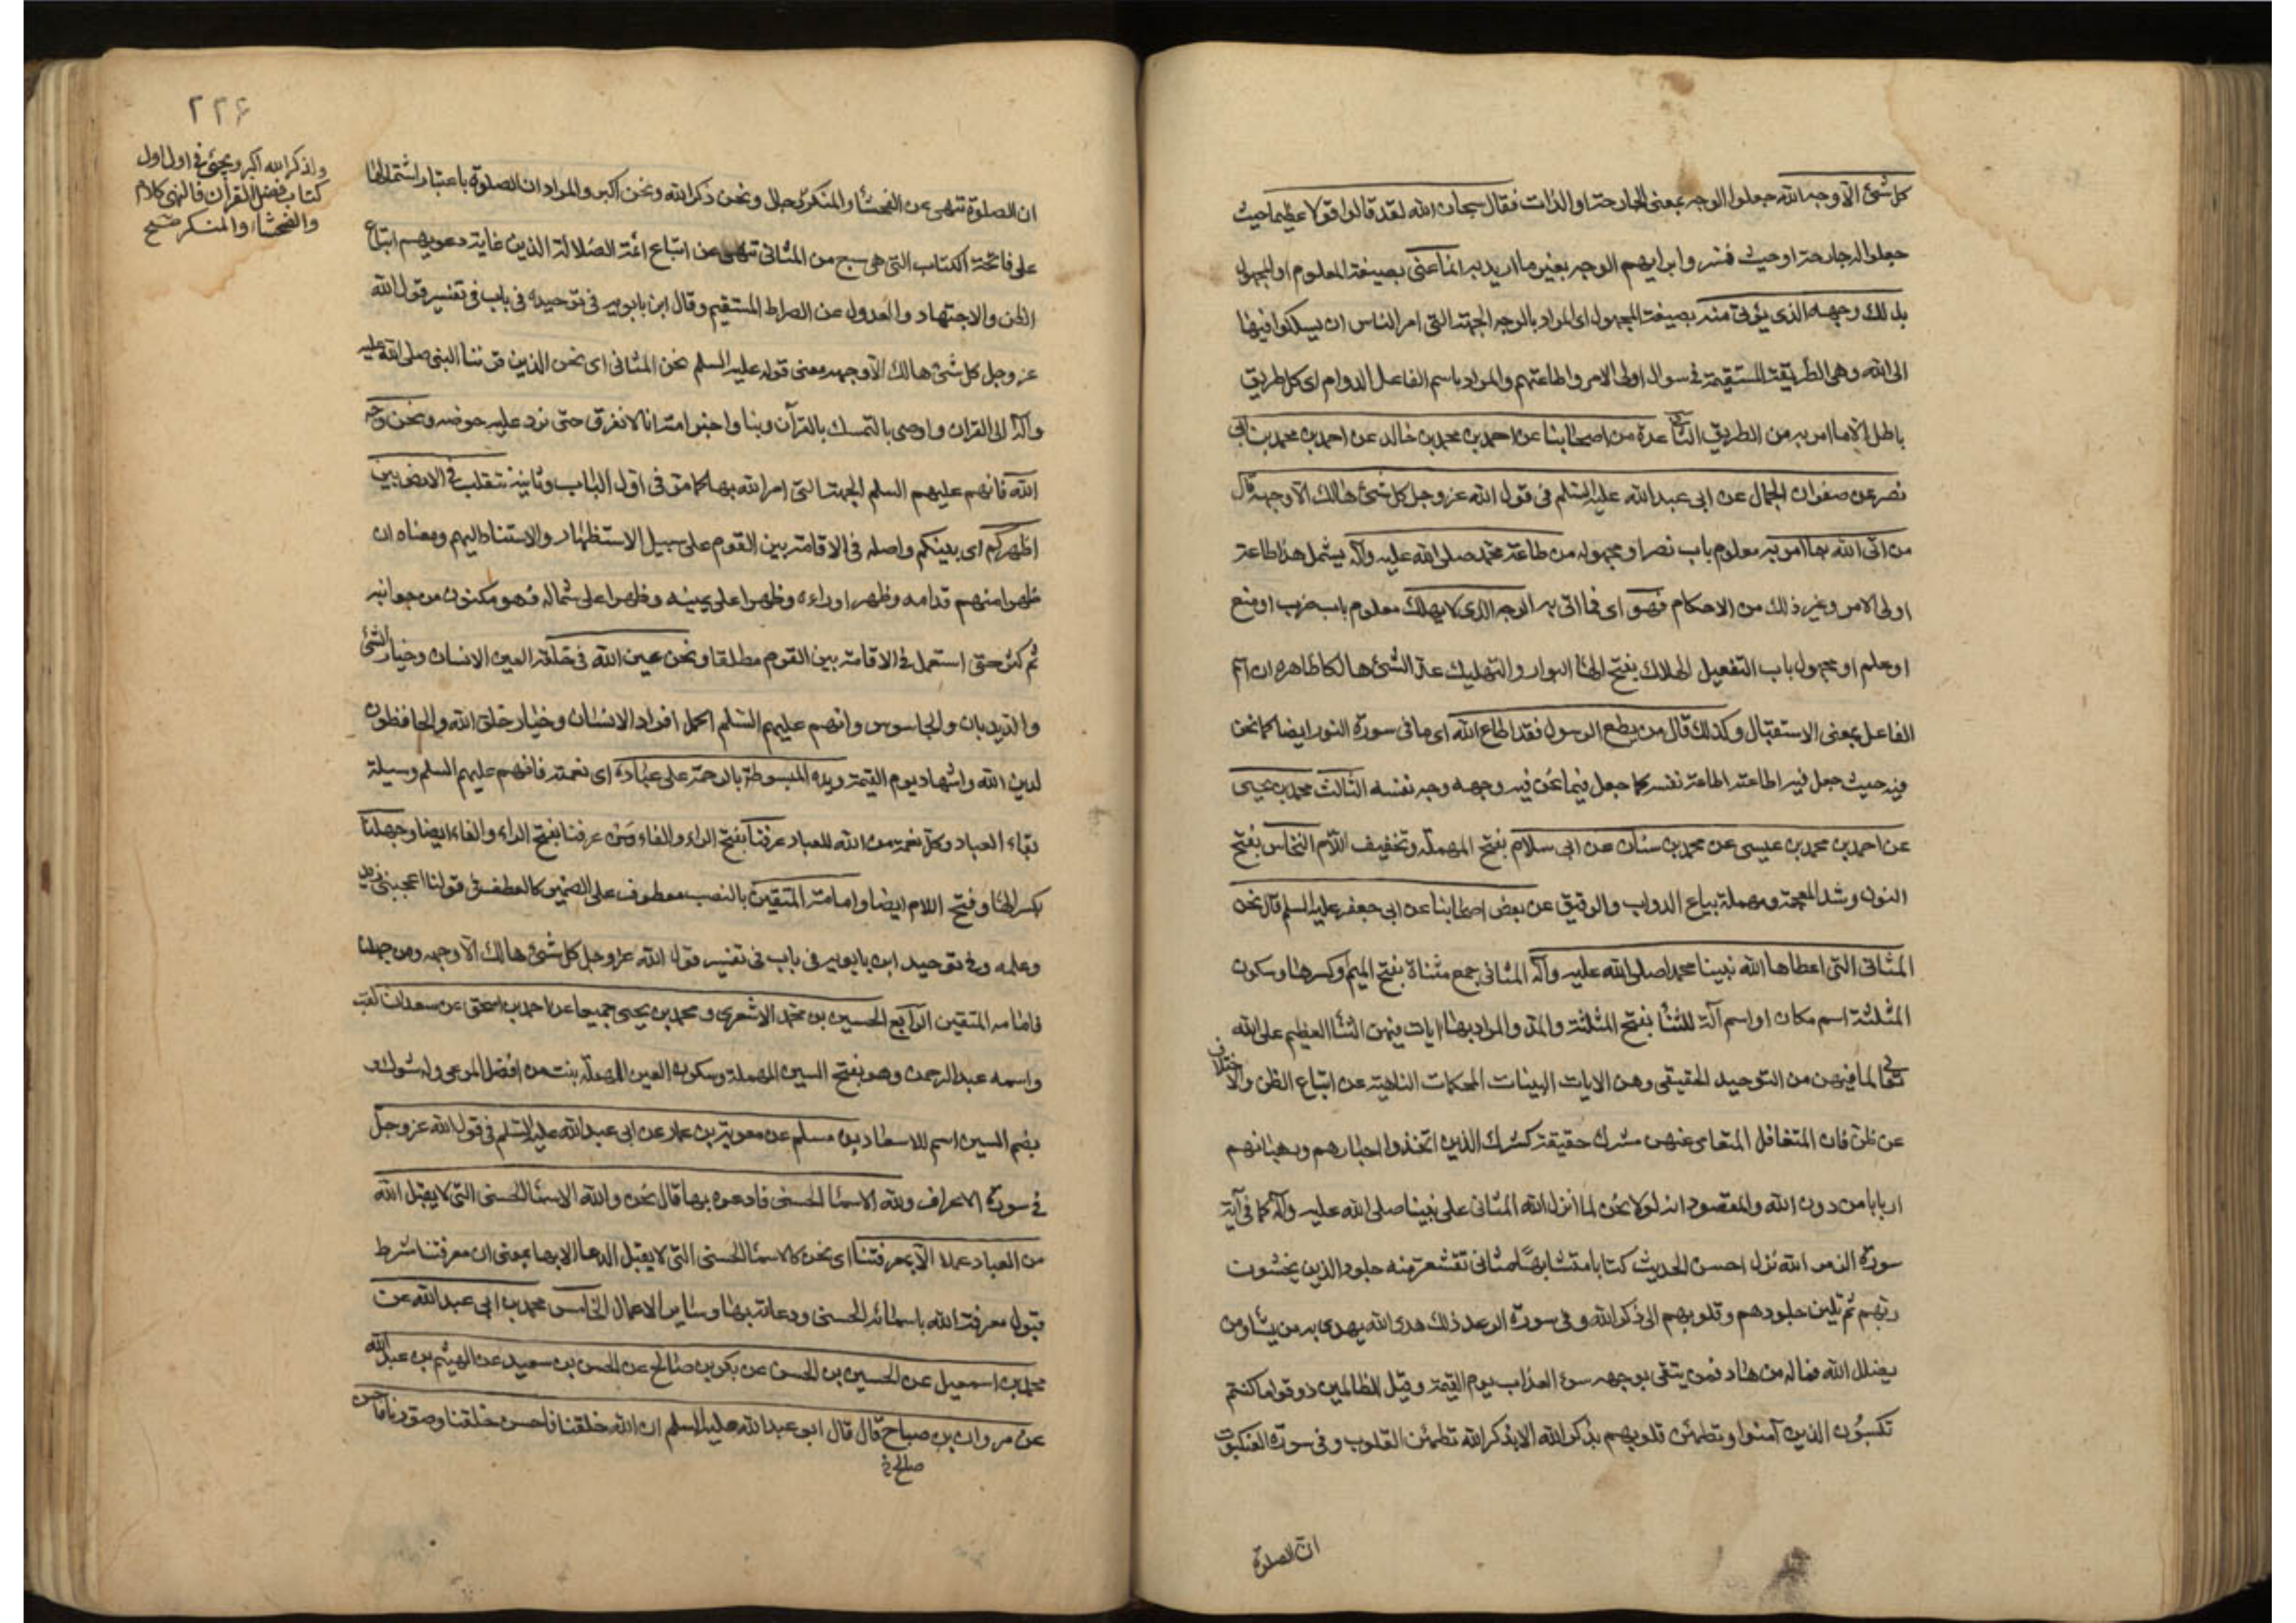 كل شئ الا وجه الله جعلوا الوجه بمعنى الجارحة او الذات فقال سبحان الله لقد قالوا قولا عظيما حيث
جعلوا له جارحة او حيث فسروا براءيهم الوجه بغير ما اريد به انما عنى بصيغة المعلوم او المجهول
بذلك وجهه الذى يؤتى منه بصيغة المجهول اى المراد بالوجه الجهة التى امر الناس ان يسلكوا فيها
الى الله وهى الطريقة المستقيمة فى سوال اولى الامر واطاعتهم والمراد باسم الفاعل الدوام اى كل طريق
باطل الا ما امر به من الطريق الثانى عدة من اصحابنا عن احمد بن محمد بن خالد عن احمد بن محمد بن ابى
نصر عن صفوان الجمال عن ابى عبد الله عليه السلم فى قول الله عز وجل كل شئ هالك الا وجهه قال
من اتى الله بما امر به معلوم باب نصر او مجهوله من طاعة محمد صلى الله عليه وآله يشتمل هذا طاعة
اولى الامر وغير ذلك من الاحكام فهو اى فما اتى به الوجه الذى لا يهلك معلوم باب ضرب او منع
او علم او مجهول باب التفعيل الهلاك بفتح الها البوار والتهليك عد الشئ هالكا ظاهره ان اسم
الفاعل بمعنى الاستقبال وكذلك قال من يطع الرسول فقد اطاع الله اى ما فى سورة النور ايضا كما نحن
فيه حيث جعل فيه اطاعته اطاعة نفسه كما جعل فيما نحن فيه وجهه وجه نفسه الثالث محمد بن يحيى
عن احمد بن محمد بن عيسى عن محمد بن سنان عن ابى سلام بفتح المهملة وتخفيف اللام النخاس بفتح
النون وشد المعجمة ومهملة بياع الدواب والرقيق عن بعض اصحابنا عن ابى جعفر عليه السلم قال نحن
المثانى التى اعطاها الله نبينا محمدا صلى الله عليه وآله المثانى جمع مثناة بفتح الميم وكسرها وسكون
المثلثة اسم مكان او اسم آلة للثنا بفتح المثلثة والمد والمراد بها ايات فيهن الثنا العظيم على الله
تعالى لما فيهن من التوحيد الحقيقى وهن الايات البينات المحكمات الناهية عن اتباع الظن والاختلاف
عن ظن فان المتغافل المتعامى عنهن مشرك حقيقة كشرك الذين اتخذوا احبارهم ورهبانهم
اربابا من دون الله والمقصود انه لولا نحن لما انزل الله المثانى على نبينا صلى الله عليه وآله كما فى آية
سورة الزمر الله نزل احسن الحديث كتابا متشابها مثانى تقشعر منه جلود الذين يخشون
ربهم ثم تلين جلودهم وقلوبهم الى ذكر الله وفى سورة الرعد ذلك هدى الله يهدى به من يشاء ومن
يضلل الله فما له من هاد فمن يتقى بوجهه سوء العذاب يوم القيمة وقيل للظالمين ذوقوا ما كنتم
تكسبون الذين آمنوا وتطمئن قلوبهم بذكر الله الا بذكر الله تطمئن القلوب وفى سورة العنكبوت
ان الصلوة
٢٢۶
ان الصلوة تنهى عن الفحشا والمنكر ونحن ذكر الله ونحن اكبر والمراد ان الصلوة باعتبار اشتمالها
على فاتحة الكتاب التى هى سبع من المثانى تنهى عن اتباع ائمة الضلالة الذين غاية دعويهم اتباع
الظن والاجتهاد والعدول عن الصراط المستقيم وقال ابن بابويه فى توحيده فى باب فى تفسير قول الله
عز وجل كل شئ هالك الا وجهه معنى قوله عليه السلم نحن المثانى اى نحن الذين قرننا النبى صلى الله عليه
وآله الى القران واوصى بالتمسك بالقرآن وبنا واخبر امته انا لا نفرق حتى نرد عليه حوضه ونحن وجه
الله فانهم عليهم السلم الجهة التى امر الله بها كما مر فى اول الباب وثانيه نتقلب فى الارض بين
اظهركم اى بينكم واصله فى الاقامة بين القوم على سبيل الاستظهار والاستناد اليهم ومعناه ان
ظهرا منهم قدامه وظهرا وراءه وظهرا على يمينه وظهرا على شماله فهو مكنون من جوانبه
ثم كثر حتى استعمل فى الاقامة بين القوم مطلقا ونحن عين الله فى خلقه العين الانسان وخيار الشئ
والديدبان والجاسوس وانهم عليهم السلم اكمل افراد الانسان وخيار خلق الله والحافظون
لدين الله واشهاد يوم القيمة ويده المبسوطة بالرحمة على عباده اى نعمته فانهم عليهم السلم وسيلة
بقاء العباد وكل نعمة من الله للعباد عرفنا بفتح الراء والفاء من عرفنا بفتح الراء والفاء ايضا وجهلنا
بكسر الها وفتح اللام ايضا وامامة المتقين بالنصب معطوف على الضمير كالعطف فى قولنا اعجبنى زيد
وعلمه وفى توحيد ابن بابويه فى باب فى تفسير قول الله عز وجل كل شئ هالك الا وجهه ومن جهلنا
فامامه المتقين الرابع الحسين بن محمد الاشعرى ومحمد بن يحيى جميعا عن احمد بن اسحق عن سعدان لقب
واسمه عبد الرحمن وهو بفتح السين المهملة وسكون العين المهملة نبت من افضل المرعى وله شوك و
بضم السين اسم للاسعاد بن مسلم عن معوية بن عمار عن ابى عبد الله عليه السلم فى قول الله عز وجل
فى سورة الاعراف ولله الاسما الحسنى فادعوه بها قال نحن والله الاسما الحسنى التى لا يقبل الله
من العباد عملا الا بمعرفتنا اى نحن كالاسما الحسنى التى لا يقبل الدعا الا بها بمعنى ان معرفتنا شرط
قبول معرفة الله باسمائه الحسنى ودعائه بها وساير الاعمال الخامس محمد بن ابى عبد الله عن
محمد بن اسمعيل عن الحسين بن الحسن عن بكر بن صالح عن الحسن بن سعيد عن الهيثم بن عبد الله
عن مروان بن صباح قال قال ابو عبد الله عليه السلم ان الله خلقنا فاحسن خلقنا وصورنا فاحسن
صالح خ
واذكر الله اكبر ويجئ فى اول اول
كتاب فضل القرآن فالنهى كلام
والفحشا والمنكر